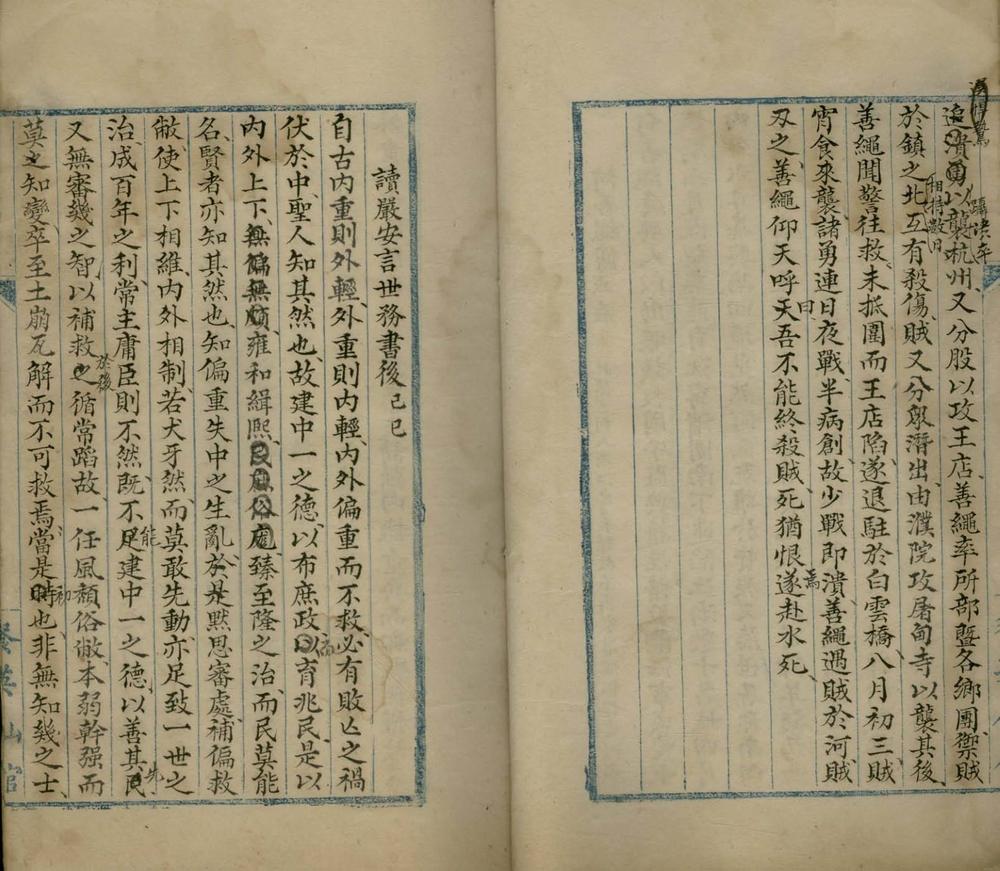 追潰勇以襲杭州又分股以攻王店善繩率所部暨各鄉團禦賊
躡洪率
相持數日
於鎮之北互有殺傷賊又分眾潛出由濮院攻屠甸寺以襲其後
善繩聞警往救未抵圍而王店陷遂退駐於白雲橋八月初三賊
宵食來襲諸勇連日夜戰半病創故少戰即潰善繩遇賊於河賊
焉
刃之善繩仰天呼曰天吾不能終殺賊死猶恨遂赴水死
讀嚴安言世務書後己巳
自古內重則外輕外重則內輕內外偏重而不救必有敗亡之禍
伏於中聖人知其然也故建中一之德以布庶政以育兆民是以
內外上下無偏無頗雍和緝熙民風俗處臻至隆之治而民莫能
名賢者亦知其然也知偏重失中之生亂於是默思審處補偏救
敝使上下相維內外相制若犬牙然而莫敢先動亦足致一世之
治成百年之利常主庸臣則不然既不能足建中一之德以善其先
又無審幾之智以補救於後之循常蹈故一任風頹俗敝本弱幹强而
莫之知變卒至土崩瓦解而不可救焉當是時初也非無知幾之士
山館